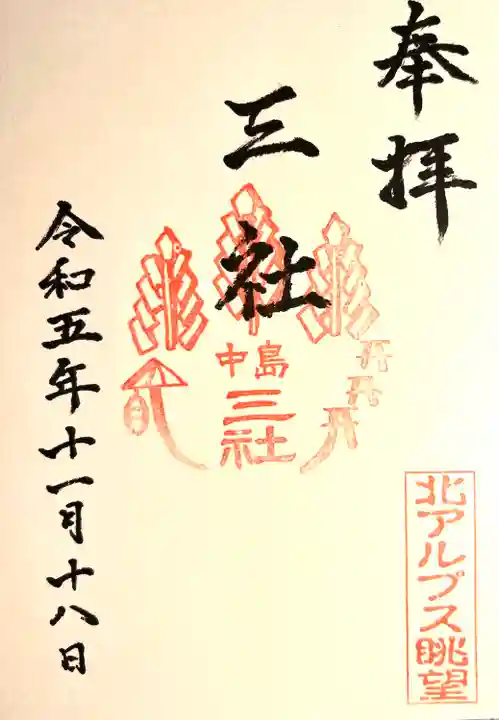 奉拝
三社
中島
三社
令和五年十一月十八日
北アルプス眺望